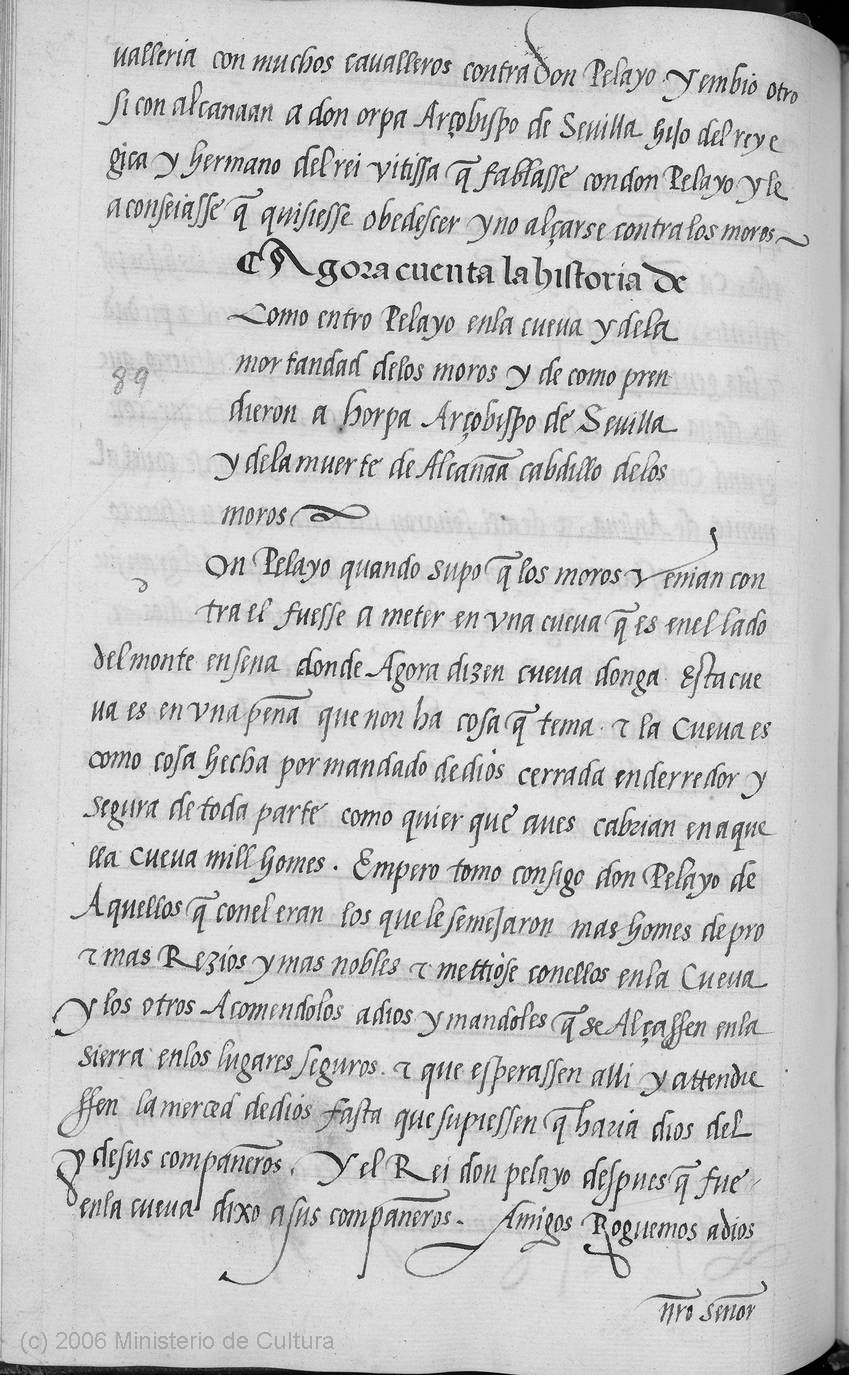 ualleria con muchos caualleros contra don Pelayo y embio otro
si con alcanaan a don orpa Arçobispo de Sevilla hijo del rey e
gica y hermano del rei vitissa q̃ fablasse con don Pelayo y le
aconseiasse q̃ quisiesse obedescer y no alçarse contra los moros
Agora cuenta la historia de
Como entro Pelayo enla cueua y dela
mortandad delos moros y de como pren
dieron a horpa Arçobispo de Sevilla
y dela muerte de Alcanãa cabdillo delos
moros
89
d
On Pelayo quando supo q̃ los moros venian con
tra el fuesse a meter en vna cueua q̃ es enel lado
del monte ensena donde Agora dizen cueva donga Esta cue
ua es en vna peña que non ha cosa q̃ tema. τ la Cueua es
como cosa hecha por mandado de dios cerrada enderredor y
segura de toda parte como quier que aues cabrian en aque
lla cueua mill homes. Empero tomo consigo don Pelayo de
Aquellos q̃ conel eran los que le semejaron mas homes de pro
τ mas Rezios y mas nobles τ mettiose conellos enla Cueua
y los otros Acomendolos a dios y mandoles q̃ se Alçassen enla
sierra enlos lugares seguros. τ que esperassen alli y attendie
ssen la merced de dios fasta que supiessen q̃ haria dios del
y de sus compañeros. Y el Rei don pelayo despues q̃ fue
enla cueua dixo a sus compañeros. Amigos Roguemos a dios
nr̃o señor
(c) 2006 Ministerio de Cultura